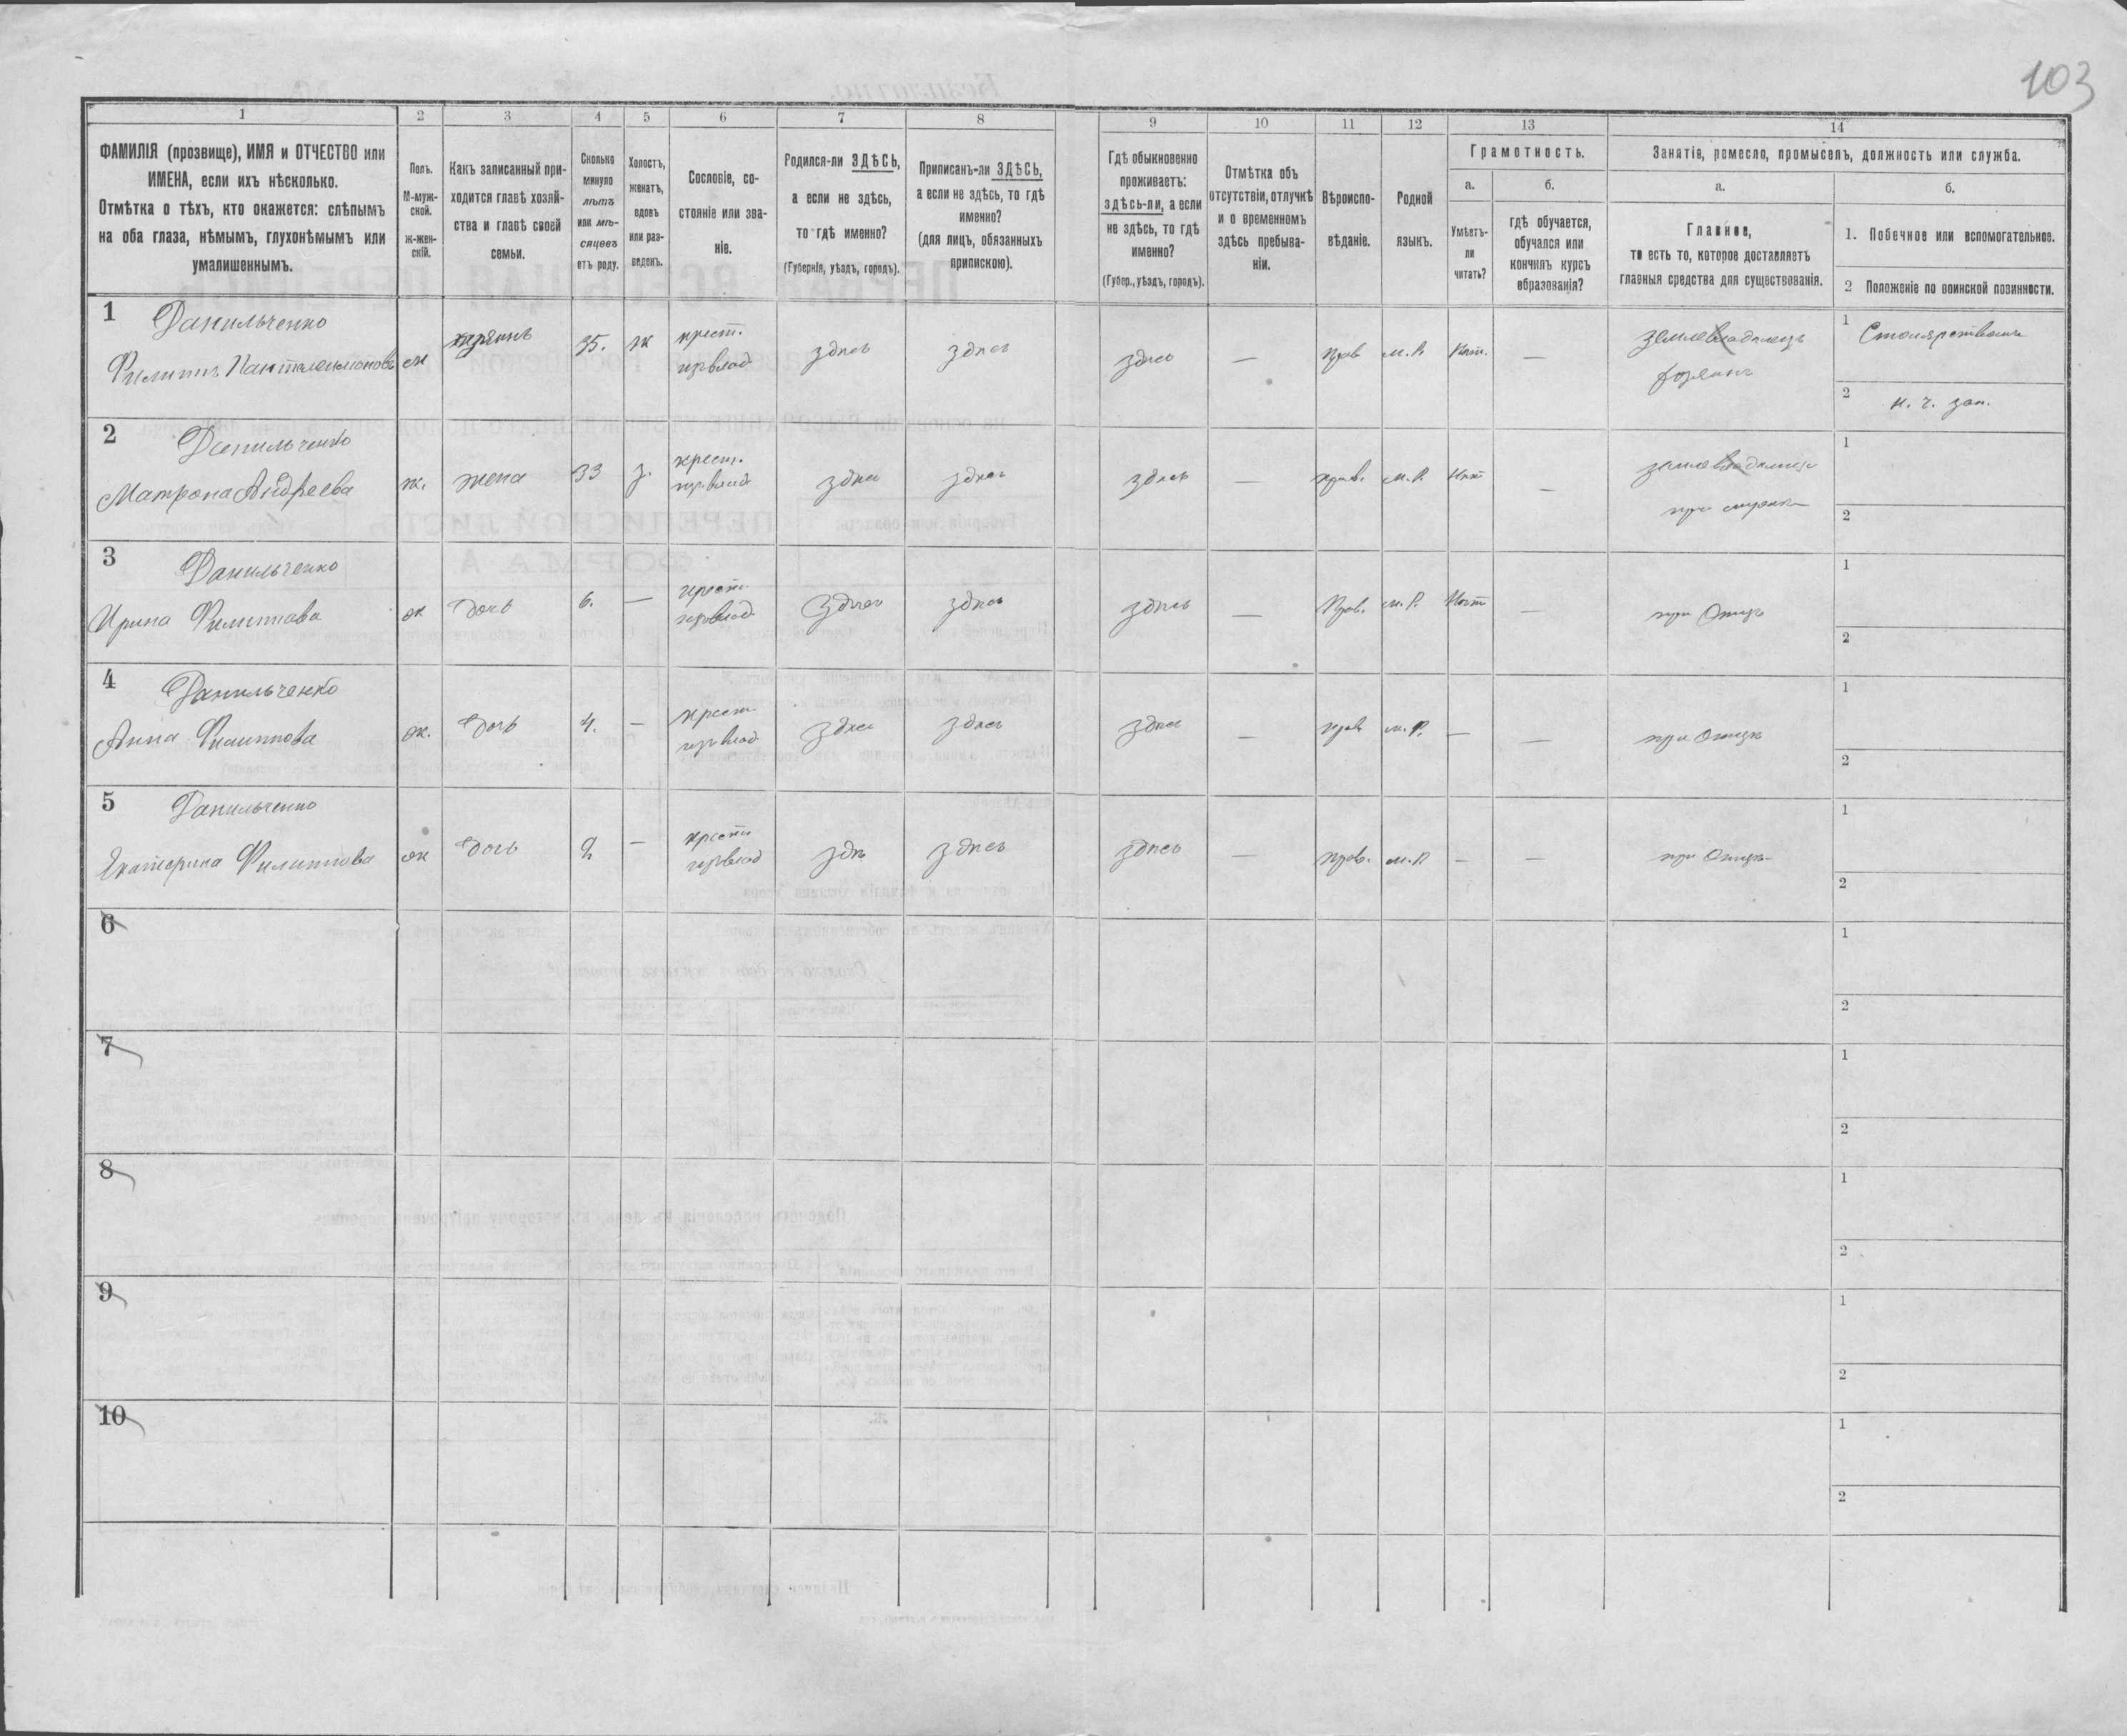 103
1 2 3 4 5 6 7 8 9 10 11 12 13 14
ФАМИЛІЯ (прозвище), ИМЯ и ОТЧЕСТВО или
ИМЕНА, если ихъ нѣсколько.
Отмѣтка о тѣхъ, кто окажется: слѣпымъ
на оба глаза, нѣмымъ, глухонѣмымъ или
умалишеннымъ.
Полъ.
М-муж-
ской.
Ж-жен-
скій.
Какъ записанный при-
ходится главѣ хозяй-
ства и главѣ своей
семьи.
Сколько
минуло
лѣтъ
или мѣ-
сяцевъ
отъ роду.
Холостъ,
женатъ,
вдовъ
или раз-
веденъ.
Сословіе, со-
стояніе или зва-
ніе.
Родился-ли ЗДѢСЬ,
а если не здѣсь,
то гдѣ именно?
(Губернія, уѣздъ, городъ).
Приписанъ-ли ЗДѢСЬ,
а если не здѣсь, то гдѣ
именно?
(для лицъ, обязанныхъ
припискою).
Гдѣ обыкновенно
проживаетъ:
здѣсь-ли, а если
не здѣсь, то гдѣ
именно?
(Губер., уѣздъ, городъ).
Отмѣтка объ
отсутствіи, отлучкѣ
и о временномъ
здѣсь пребыва-
ніи.
Вѣроиспо-
вѣданіе.
Родной
языкъ.
Грамотность.
а. б.
Умѣетъ-
ли
читать?
гдѣ обучается,
обучался или
кончилъ курсъ
образованія?
Занятіе, ремесло, промыселъ, должность или служба.
а. б.
Главное,
то есть то, которое доставляетъ
главныя средства для существованія.
1. Побочное или вспомогательное.
2 Положеніе по воинской повинности.
1 Данильченко
Филиппъ Пантелеимоновъ м 35. ж крест. здѣсь здѣсь здѣсь — прав м.Р. —
1
2 н. ч. зап.
2 Данильченко
Матрона Андреева ж. жена 33 з. крест. здѣсь здѣсь здѣсь — прав. м.Р. нѣт —
1
2
3 Данильченко
Ирина Филиппова ж дочь 6. — крест. здѣсь здѣсь здѣсь — Прав. м.Р. нѣт — при Отцѣ
1
2
4 Данильченко
Анна Филиппова ж. дочь 4. — крест. здѣсь здѣсь здѣсь — прав м.Р. — — при Отцѣ
1
2
5 Данильченко
Екатерина Филиппова ж дочь 2 — крест здѣ здѣсь здѣсь — прав. м.Р. — — при Отцѣ
1
2
6
1
2
7
1
2
8
1
2
9
1
2
10
1
2